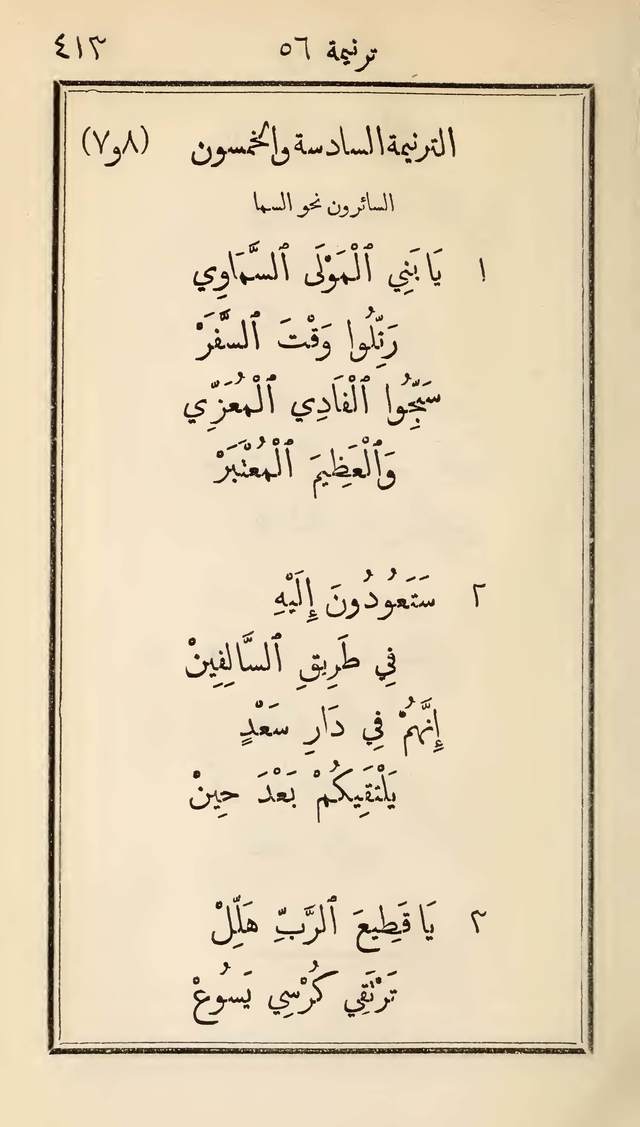 ترنيمة ٥٦ ٤١٣
الترنيمة السادسة والخمسون (٨ و٧)
السائرون نحو السما
١ يَا بَنِي ٱلْمَوْلَى ٱلسَّمَاوِي
رَنِّلُوا وَقْتَ ٱلسَّفَرْ
سَبِّحُوا ٱلْفَادِي ٱلْمُعَزِّي
وَٱلْعَظِيمَ ٱلْمُعْتَبَرْ
٢ سَتَعُودُونَ إِلَيْهِ
فِي طَرِيقِ ٱلسَّالِفِينْ
إِنَّهُمْ فِي دَارِ سَعْدٍ
يَلْتَقِيكُمْ بَعْدَ حِينْ
٣ يَا قَطِيعَ ٱلرَّبِّ هَلِّلْ
تَرْتَقِي كُرْسِي يَسُوعْ